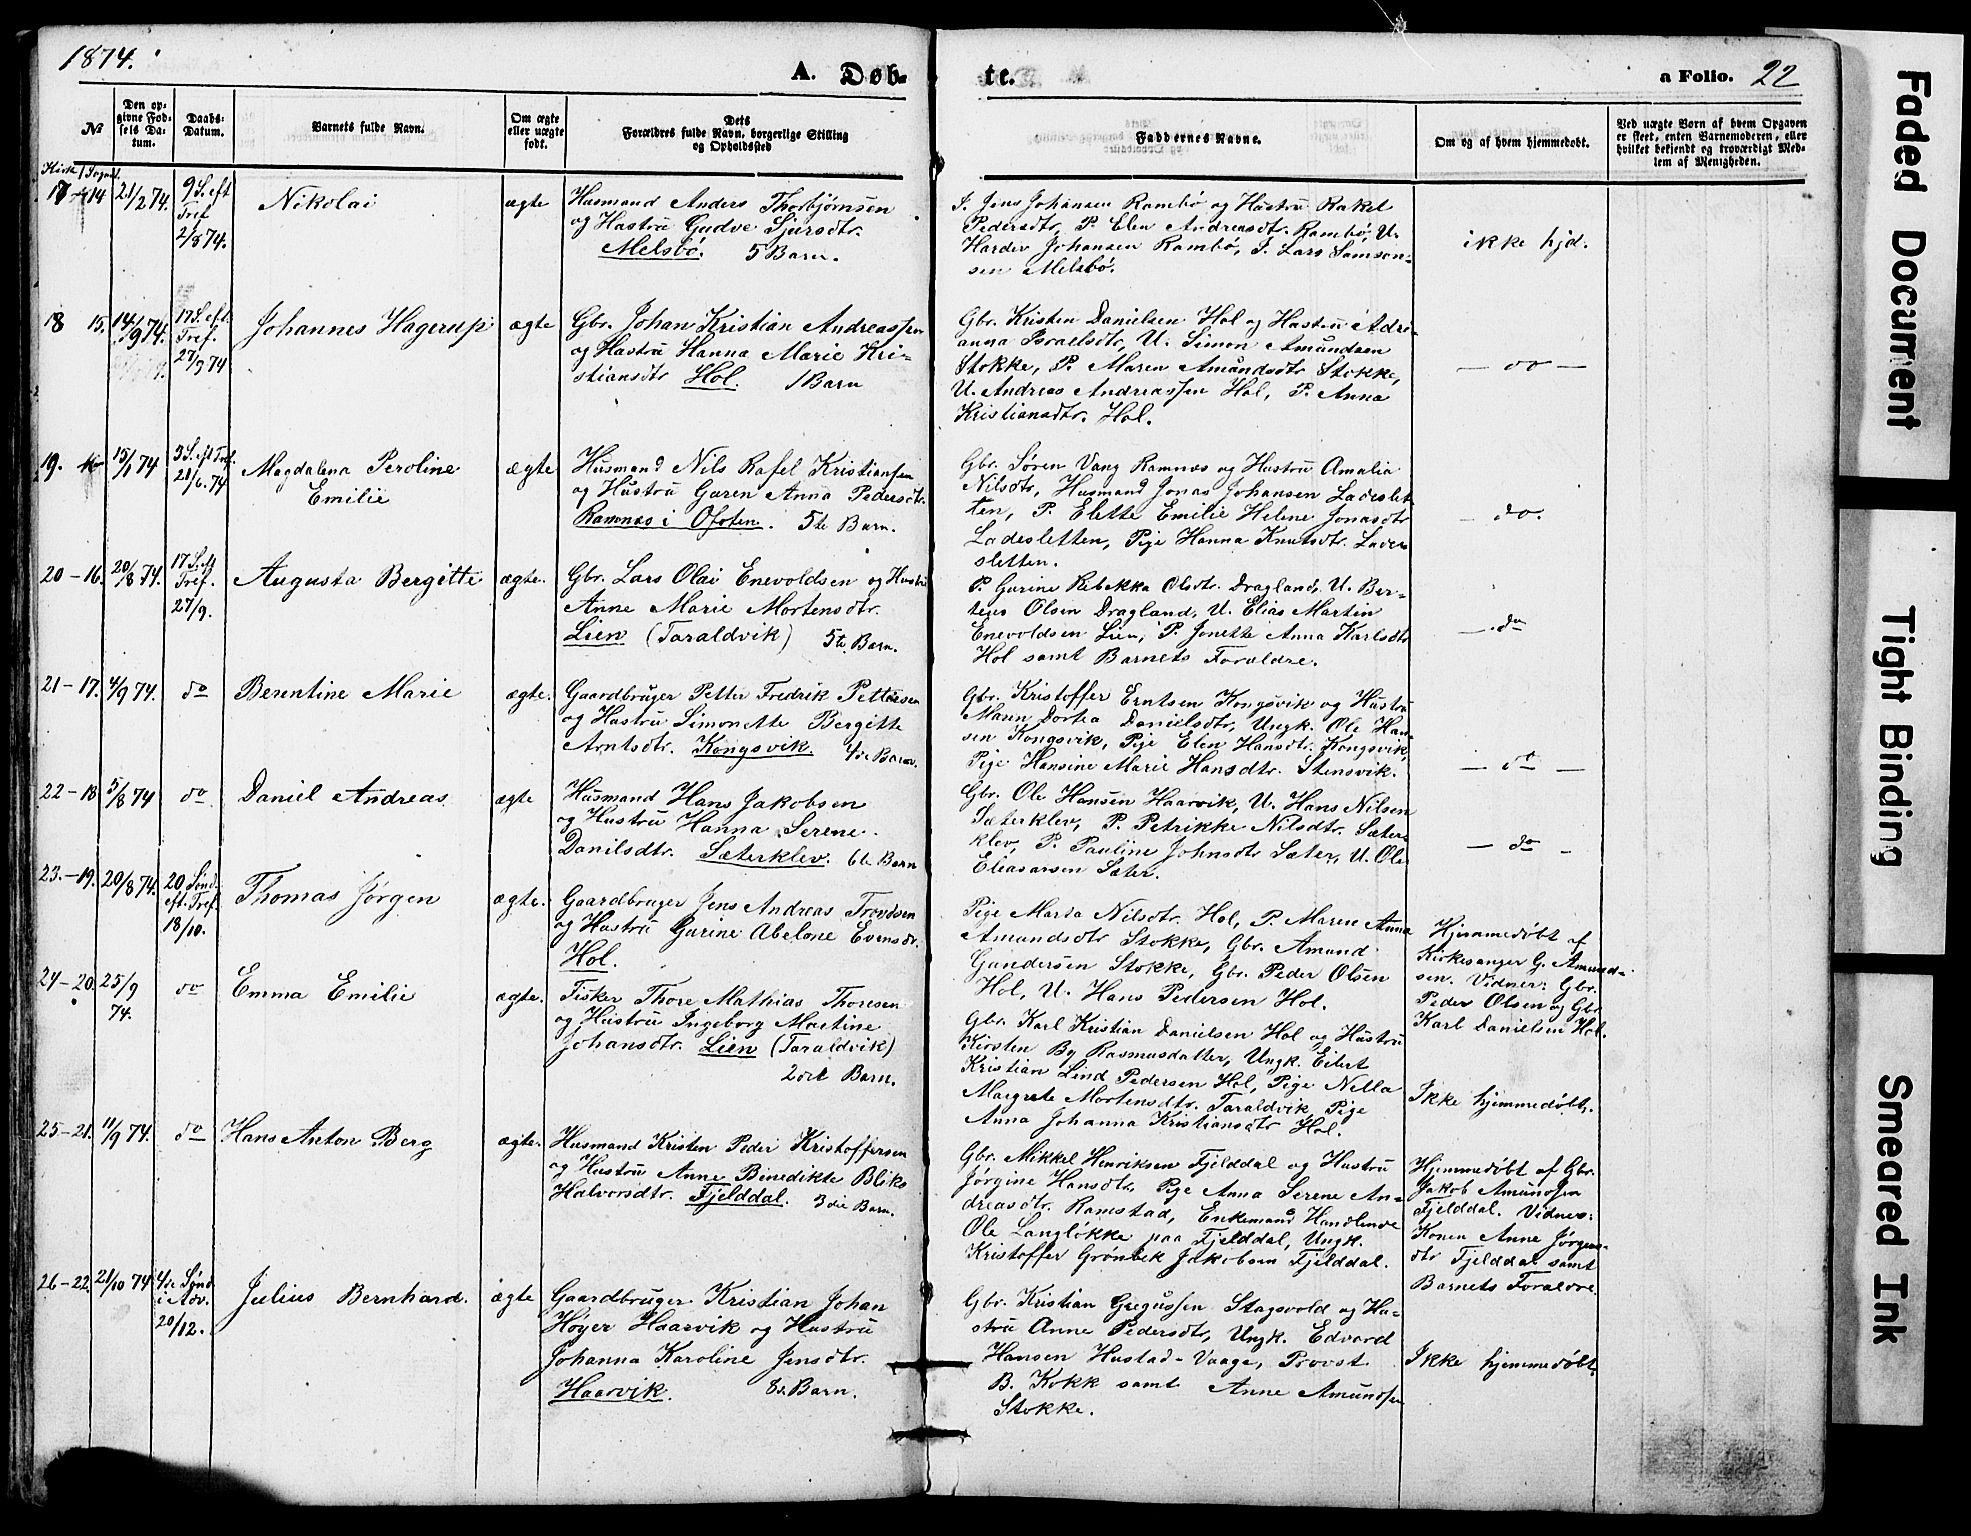 1874.
A. Døb-
te.
a Folio. 22
No
Den op-
givne Fød-
sels Da-
tum.
Daabs-
Datum.
Barnets fulde Navn.
Om ægte
eller uægte
født.
Dets
Forældres fulde Navn, borgerlige Stilling
og Opholdssted
Faddernes Navne.
Om og af hvem hjemmedøbt.
Ved uægte Børn af hvem Opgaven
er skeet, enten Barnemoderen, eller
hvilket bekjendt og troværdigt Med-
lem af Menigheden.
17 - 14 21/2 74. 9 S. eft
Tref.
2/8 74.
Nikolai
ægte
Husmand Anders Thorbjørnsen
og Hustru Gudve Sjursdtr.
Melsbø. 5 Barn.
I. Jens Johansen Rambø og Hustru Rakel
Pedersdtr, P. Elen Andreasdtr. Rambø, U.
Harder Johansen Rambø, I. Lars Samson-
sen Melsbø.
ikke hjd.
18 15. 14/9 74. 17 S. eft.
Tref.
27/9 74
Johannes Hagerup
ægte
Gbr. Johan Kristian Andreassen
og Hustru Hanna Marie Kri-
stiansdtr Hol. 1 Barn
Gbr. Kristen Danielsen Hol og Hustru Adri-
anna Israelsdtr, U. Simon Amundsen
Stokke, P. Maren Amundsdtr Stokke,
U. Andreas Andreassen Hol, P. Anna
Kristiansdtr. Hol.
— do —
19. 15/1 74 3 S. eft Tref.
21/6. 74
Magdalena Peroline
Emilie
ægte
Husmand Nils Rafel Kristiansen
og Hustru Guren Anna Pedersdtr.
Ramnæs i Ofoten. 5te Barn.
Gbr. Søren Vang Ramnæs og Hustru Amalia
Nilsdtr, Husmand Jonas Johansen Ladeslet
ten, P. Elette Emilie Helene Jonasdtr
Ladesletten, Pige Hanna Knutsdtr. Lade-
sletten.
— do.
20 - 16. 20/8 74. 17 S. eft
Tref.
27/9.
Augusta Bergitte
ægte.
Gbr. Lars Olai Enevoldsen og Hustru
Anne Marie Mortensdtr.
Lien (Taraldvik) 5te Barn.
P. Gurine Rebekka Olsdtr. Dragland, U. Ber-
teus Olsen Dragland, U. Elias Martin
Enevoldsen Lien, P. Jonette Anna Karlsdtr
Hol samt Barnets Forældre.
— do
21 - 17. 4/9 74. do
Berentine Marie
ægte.
Gaardbruger Petter Fredrik Pettersen
og Hustru Simonette Bergitte
Arntsdtr. Kongsvik. 4de Barn.
Gbr. Kristoffer Erntsen Kongsvik og Hustru
Mann Dortea Danielsdtr, Ungk. Ole Han-
sen Kongsvik, Pige Elen Hansdtr. Kongsvik,
Pige Hansine Marie Hansdtr. Stensvik.
— do —
22 - 18 5/8 74 do
Daniel Andreas
ægte
Husmand Hans Jakobsen
og Hustru Hanna Serene
Danilsdtr. Sæterklev. 6te Barn
Gbr. Ole Hansen Haarvik, U. Hans Nilsen
Sæterklev, P. Petrikke Nilsdtr. Sæter-
klev, P. Pauline Johnsdtr Sæter, U. Ole
Eleasarsen Sæter.
— do —
23. - 19. 20/8 74. 20 Sønd.
eft. Tref.
18/10.
Thomas Jørgen
ægte.
Gaardbruger Jens Andreas Trondsen
og Hustru Gurine Abelone Evensdtr.
Hol.
Pige Marda Nilsdtr. Hol, P. Maren Anna
Amundsdtr Stokke, Gbr. Amund
Gundersen Stokke, Gbr. Peder Olsen
Hol, U. Hans Pedersen Hol.
Hjemmedøbt af
Kirkesanger G. Amund-
sen. Vidner: Gbr.
Peder Olsen og Gbr
Karl Danielsen Hol.
24 - 20. 25/9
74. do
Emma Emilie
ægte.
Fisker Thore Mathias Thoresen
og Hustru Ingeborg Martine
Johansdtr. Lien (Taraldvik)
2det Barn.
Gbr. Karl Kristian Danielsen Hol og Hustru
Kirsten By Rasmusdatter, Ungk. Eilert
Kristian Lind Pedersen Hol, Pige Nella
Margrete Mortensdtr. Taraldvik, Pige
Anna Johanna Kristiansdtr Hol.
Ikke hjemmedøbt.
25 - 21. 11/9 74. do
Hans Anton Berg
ægte.
Husmand Kristen Peder Kristoffersen
og Hustru Anne Benedikte Bliks
Halvorsdtr. Fjelddal. 3die Barn.
Gbr. Mikkel Henriksen Fjelddal og Hustru
Jørgine Hansdtr, Pige Anna Serene An-
dreasdtr. Ramstad, Enkemand Handlende
Ole Langløkke paa Fjelddal, Ungk.
Kristoffer Grønbek Jakobsen Fjelddal.
Hjemmedøbt af Gbr.
Jakob Amundsen
Fjelddal. Vidner:
Konen Anne Jørgens-
dtr Fjelddal samt
Barnets Forældre.
26 - 22. 21/10 74 4de Sønd
i Adv.
20/12.
Julius Bernhard.
ægte
Gaardbruger Kristian Johan
Høyer Haarvik og Hustru
Johanna Karoline Jensdtr.
Haarvik. 8de Barn.
Gbr. Kristian Gregussen Stagsvold og Hu-
stru Anne Pedersdtr, Ungk. Edvard
Hansen Hustad-Vaage, Provst
B. Kokk samt Anne Amundsen
Stokke.
Ikke hjemmedøbt.
Faded Document
Tight Binding
Smeared Ink